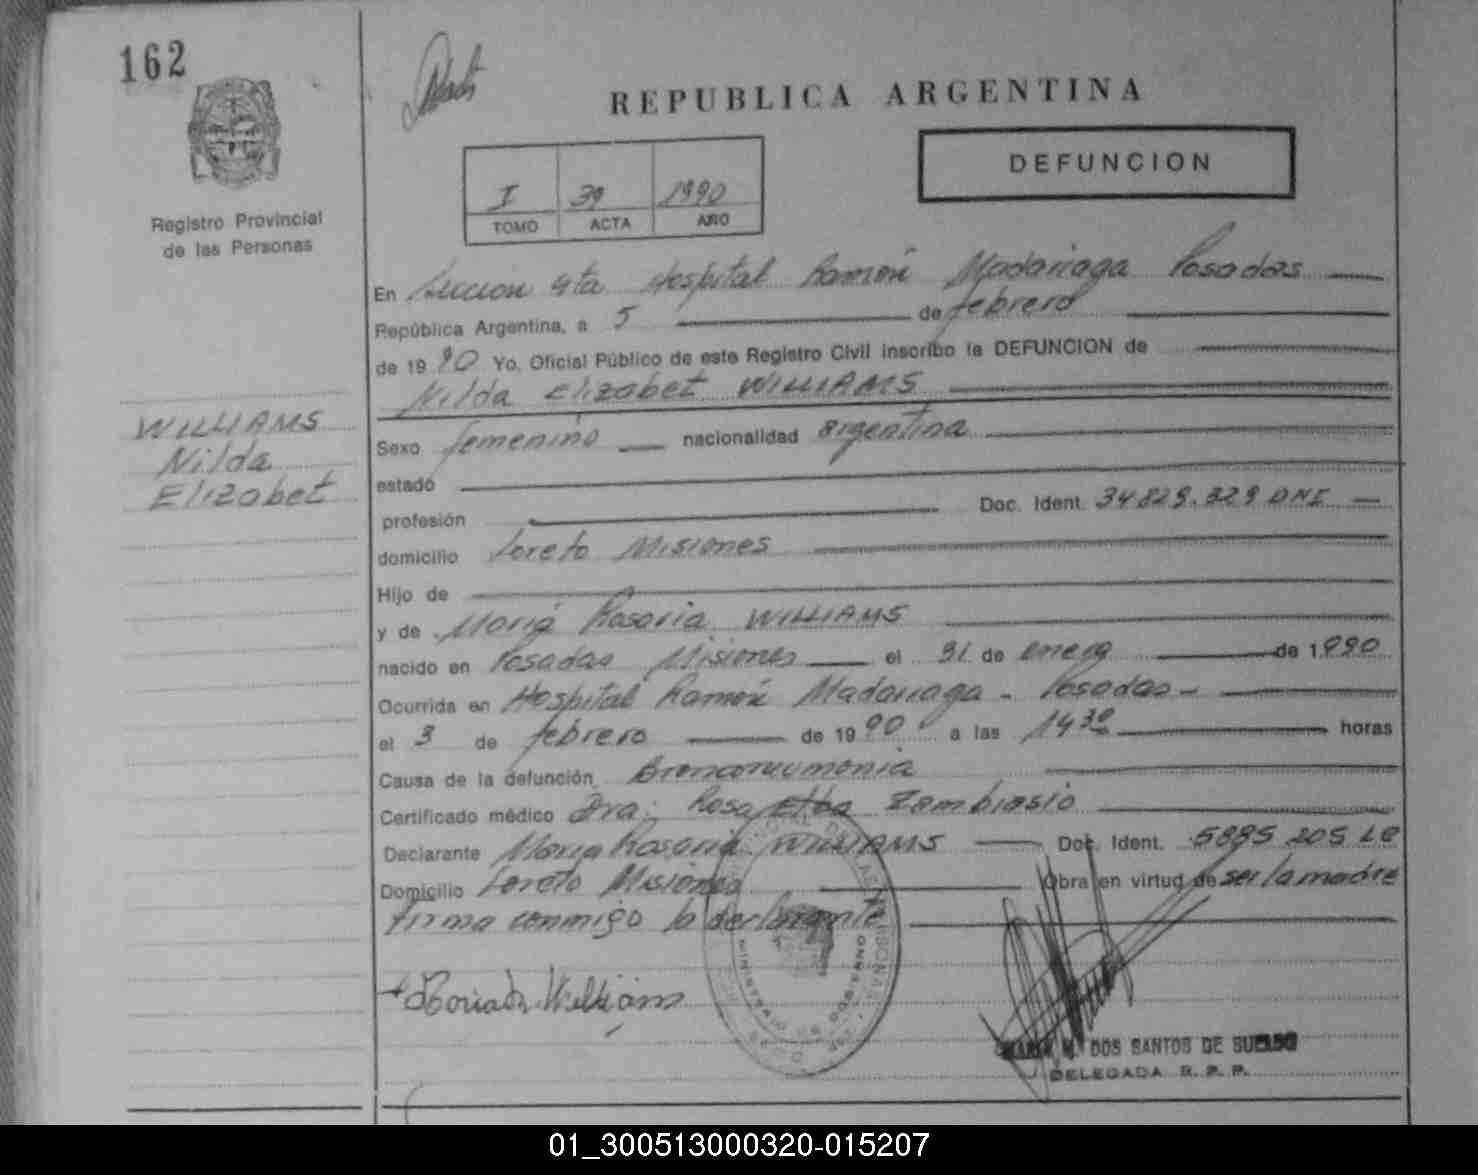 162
REPUBLICA ARGENTINA
DEFUNCION
I 39 1990
TOMO ACTA AÑO
Registro Provincial
de las Personas
En Seccion 4ta Hospital Ramón Madariaga Posadas
República Argentina, a 5 de febrero
de 1990 Yo, Oficial Público de este Registro Civil inscribo la DEFUNCION de
Nilda Elizabet WILLIAMS
WILLIAMS
Nilda
Elizabet
Sexo femenino nacionalidad argentina
estado
profesión Doc. Ident. 34.829.329 DNI
domicilio Loreto Misiones
Hijo de
y de María Rosaria WILLIAMS
nacido en Posadas Misiones el 31 de enero de 1990
Ocurrida en Hospital Ramón Madariaga - Posadas -
el 3 de febrero de 1990 a las 14 30 horas
Causa de la defunción Bronconeumonia
Certificado médico Dra: Rosa Elba Zambiasio
Declarante María Rosaria WILLIAMS Doc. Ident. 5885 205 LC
Domicilio Loreto Misiones Obra en virtud de ser la madre
firma conmigo la declarante
Williams
MINISTERIO DE GOBIERNO
DOS SANTOS DE SUELDO
DELEGADA R. P. P.
01_300513000320-015207